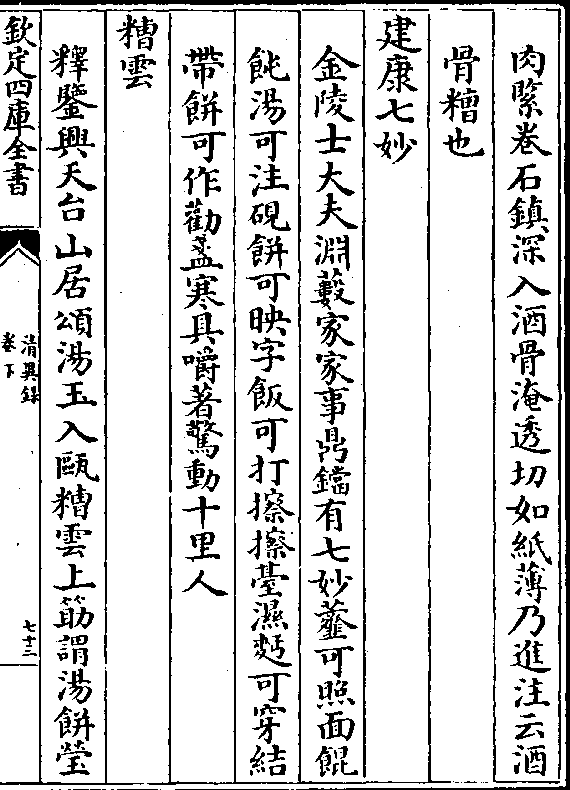 肉緊卷石鎮深入酒骨淹透切如紙薄乃進注云酒
骨糟也
建康七妙
金陵士大夫淵藪家家事鼎鐺有七妙虀可照面餛
飩湯可注硯餅可映字飯可打擦擦臺濕麪可穿結
帶餅可作勸盞寒具嚼著驚動十里人
糟雲
釋鑒興天台山居頌湯玉入甌糟雲上筯謂湯餅瑩
欽定四庫全書
清異録
卷下
七十二